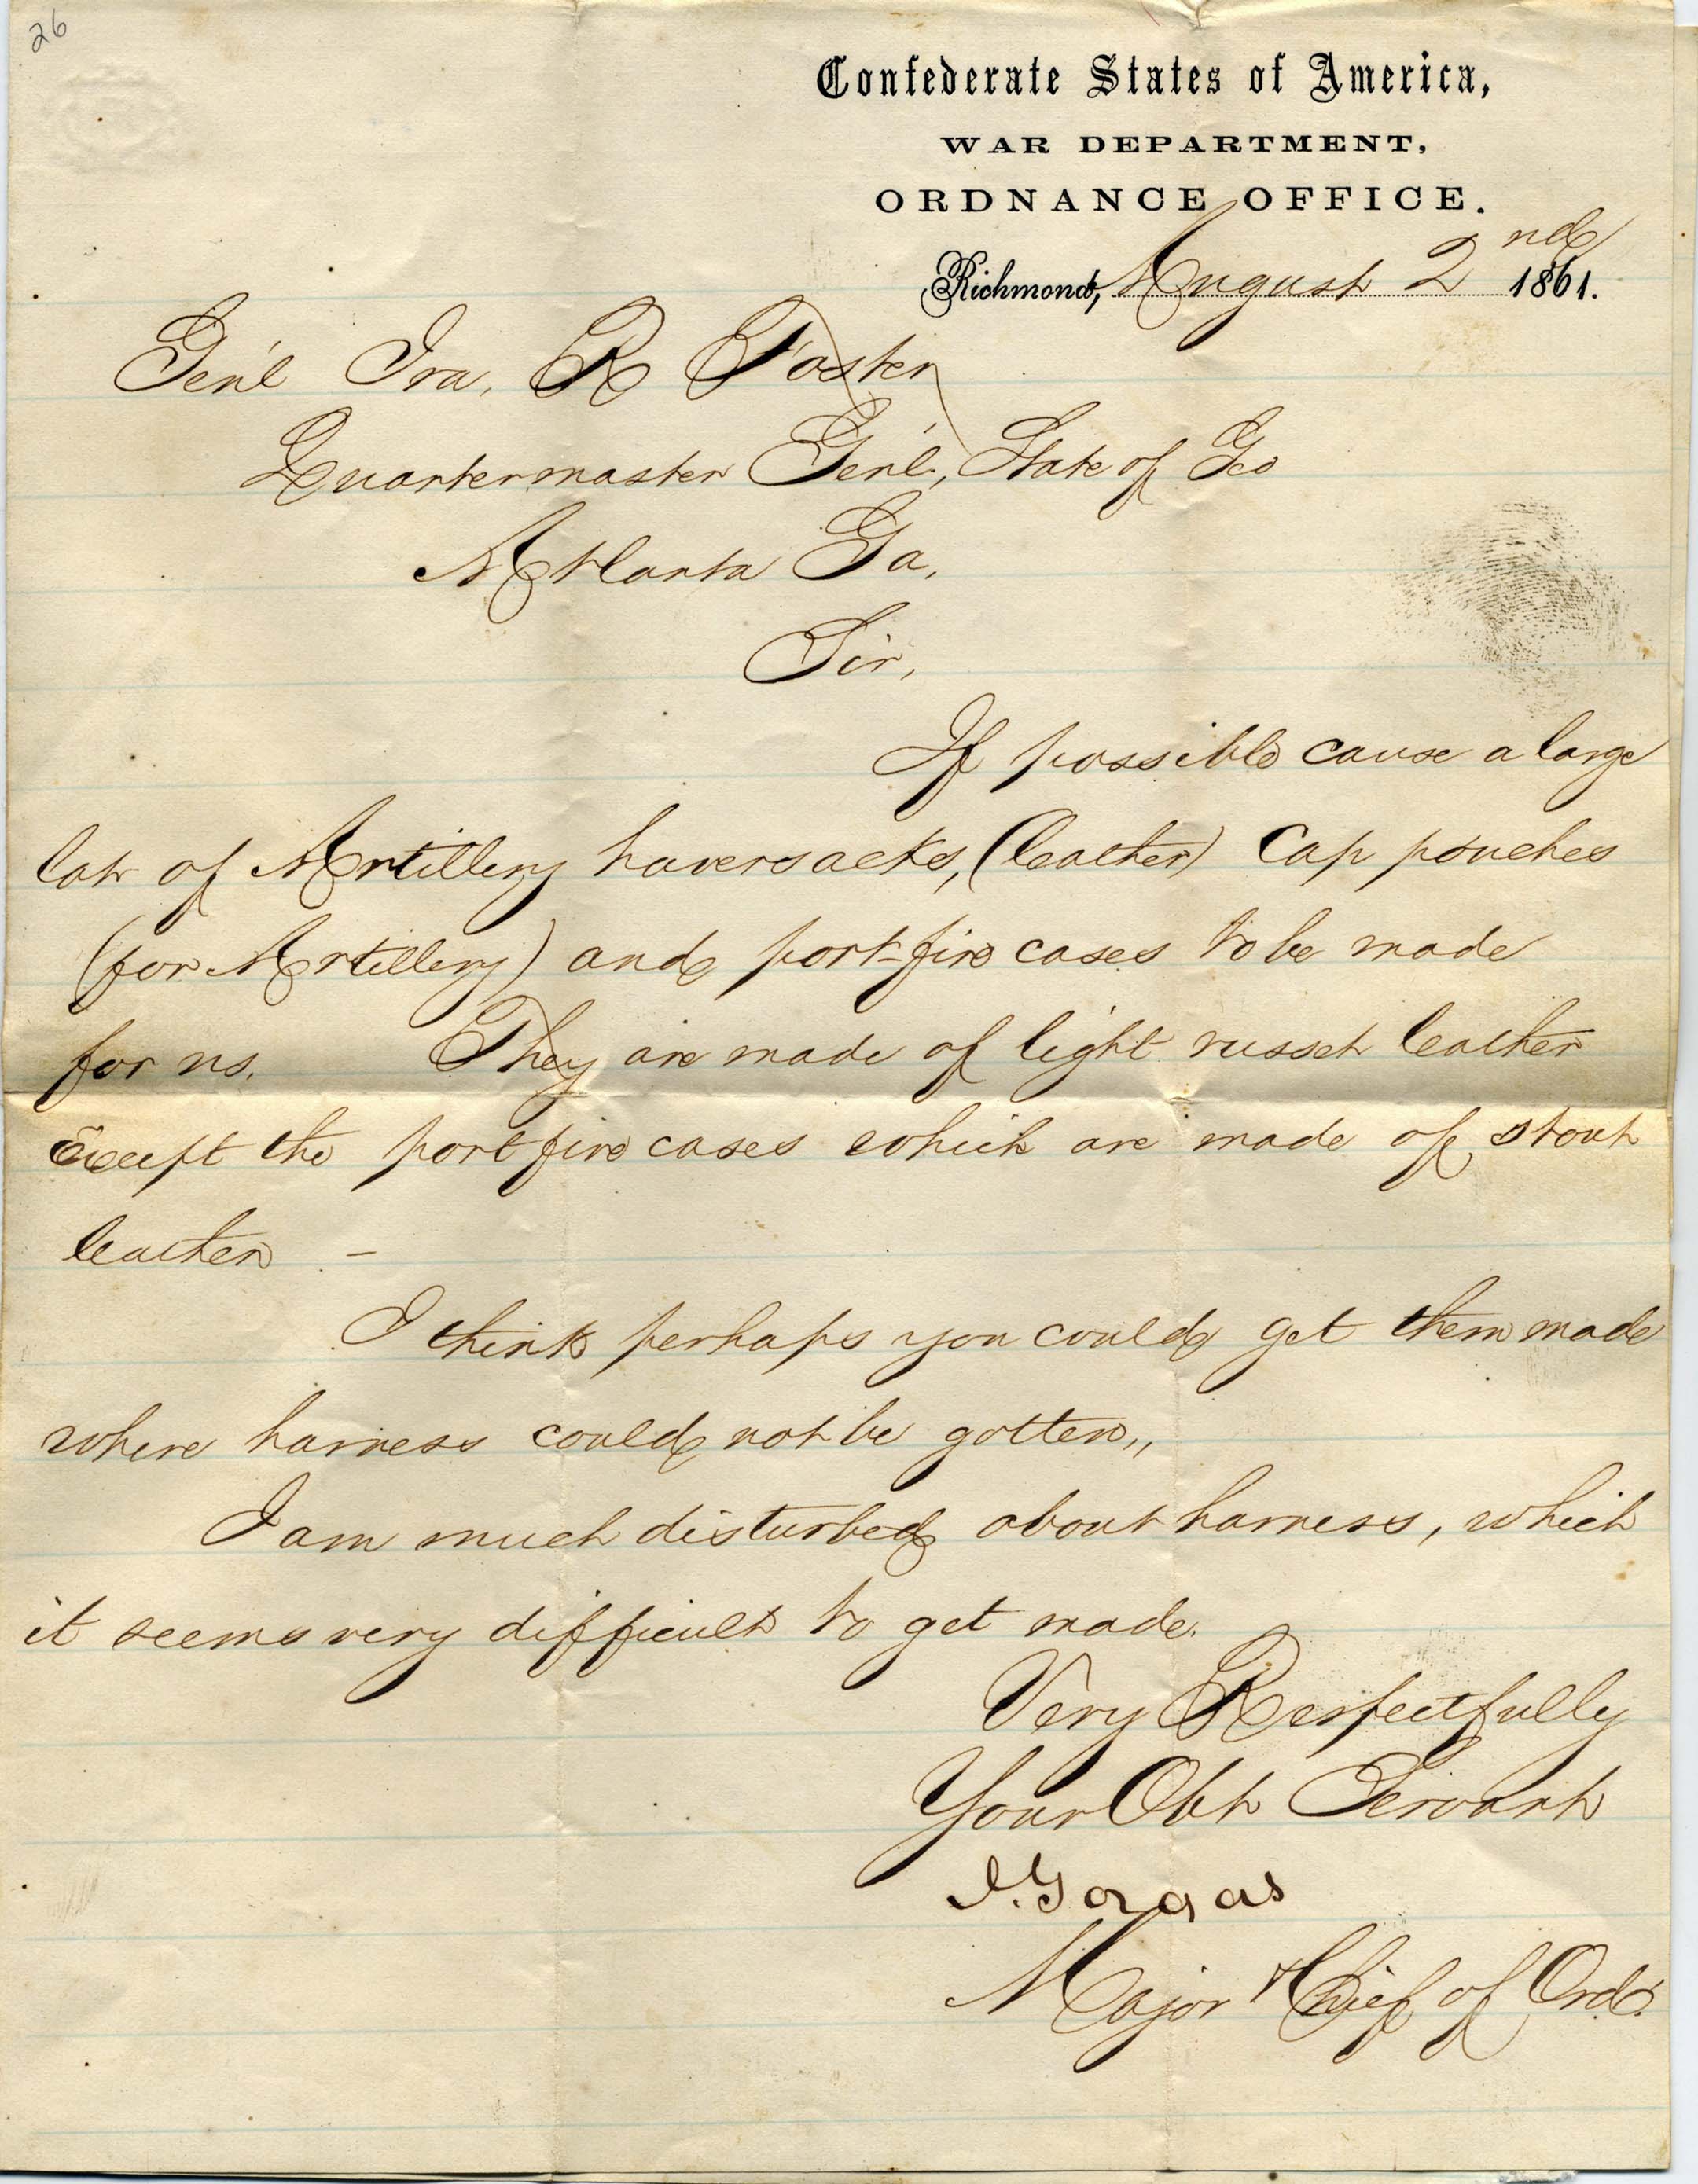 26
Confederate States of America,
WAR DEPARTMENT,
ORDNANCE OFFICE.
Richmond, August 2nd 1861.
Gen'l Ira. R Foster
Quartermaster Gen'l, State of Geo
Atlanta Ga,
Sir,
If possible cause a large
lot of Artillery haversacks, (leather) Cap pouches
(for Artillery) and port-fire cases to be made
for us. They are made of light russet leather
Except the port fire cases which are made of stout
leather -
I think perhaps you could get them made
where harness could not be gotten,,
I am much disturbed about harness, which
it seems very difficult to get made.
Very Respectfully
Your Obt Servant
J. Gorgas
Major & Chief of Ord.